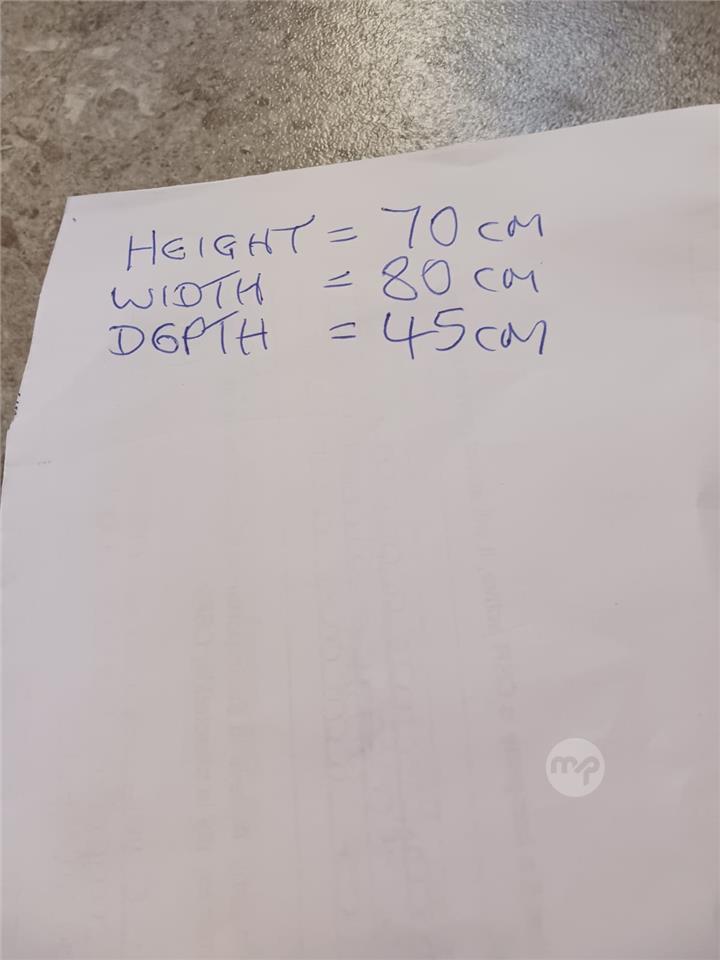 HEIGHT = 70 CM
WIDTH = 80 CM
DEPTH = 45 CM
mp